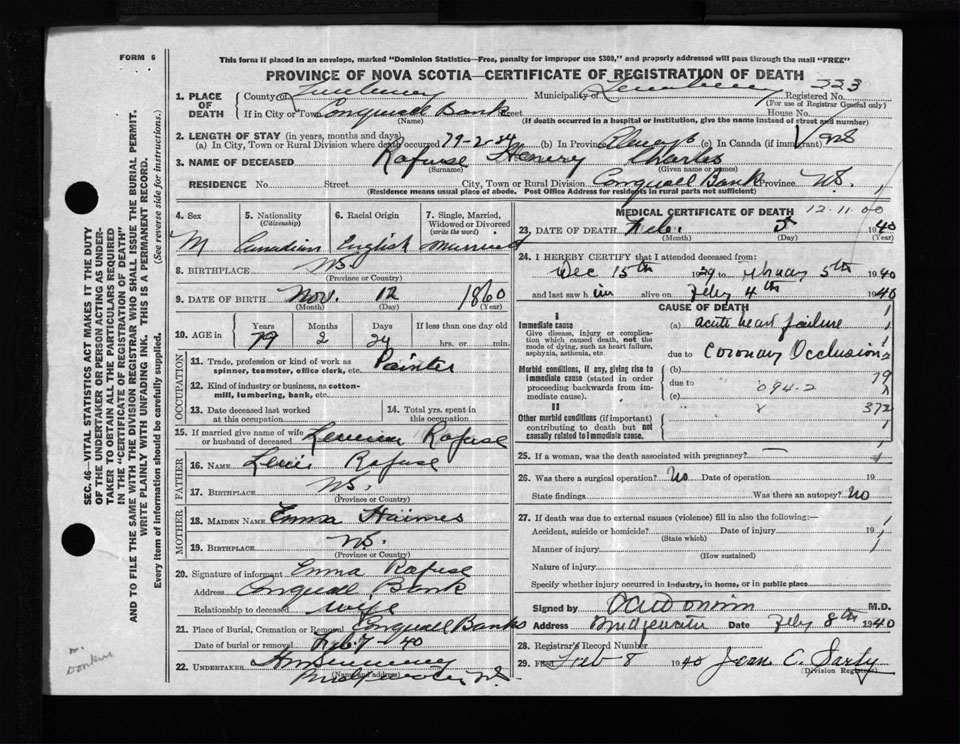 FORM 6
This form if placed in an envelope, marked "Dominion Statistics—Free, penalty for improper use $300," and properly addressed will pass through the mail "FREE"
PROVINCE OF NOVA SCOTIA—CERTIFICATE OF REGISTRATION OF DEATH
1. PLACE OF DEATH County of Lunenburg Municipality of Lunenburg Registered No. 223
(For use of Registrar General only)
If in City or Town Conquall Bank Street House No.
(Name) (If death occurred in a hospital or institution, give the name instead of street and number)
2. LENGTH OF STAY (in years, months and days)
(a) In City, Town or Rural Division where death occurred 79-2-24 (b) In Province (c) In Canada (if immigrant)
3. NAME OF DECEASED Rafuse Henery Charles
(Surname) (Given name or names)
RESIDENCE No. Street City, Town or Rural Division Conquall Bank Province N.S.
(Residence means usual place of abode. Post Office Address for residents in rural parts not sufficient)
4. Sex M
5. Nationality (Citizenship) Canadian
6. Racial Origin English
7. Single, Married, Widowed or Divorced (write the word) Married
8. BIRTHPLACE N.S.
(Province or Country)
9. DATE OF BIRTH Nov. 12 1860
(Month) (Day) (Year)
10. AGE in Years 79 Months 2 Days 24 If less than one day old hrs. or min.
OCCUPATION
11. Trade, profession or kind of work as spinner, teamster, office clerk, etc. Painter
12. Kind of industry or business, as cotton-mill, lumbering, bank, etc.
13. Date deceased last worked at this occupation
14. Total yrs. spent in this occupation
15. If married give name of wife or husband of deceased Rafuse
FATHER
16. NAME Rafuse
17. BIRTHPLACE N.S.
(Province or Country)
MOTHER
18. MAIDEN NAME Emma Haimes
19. BIRTHPLACE N.S.
(Province or Country)
20. Signature of informant Emma Rafuse
Address Conquall Bank
Relationship to deceased wife
21. Place of Burial, Cremation or Removal Conquall Banks
Date of burial or removal Feb. 7 - 40
22. UNDERTAKER
(Name and address) N.S.
MEDICAL CERTIFICATE OF DEATH 12.11.00
23. DATE OF DEATH Feb. 5 1940
(Month) (Day) (Year)
24. I HEREBY CERTIFY that I attended deceased from:
Dec 15th 1939 to 5th 1940
and last saw him alive on Feby 4th 1940
CAUSE OF DEATH
I
Immediate cause
Give disease, injury or complication which caused death, not the mode of dying, such as heart failure, asphyxia, asthenia, etc
(a) acute heart failure
due to Coronary Occlusion
Morbid conditions, if any, giving rise to immediate cause (stated in order proceeding backwards from immediate cause).
(b)
due to 094-2 79
(c)
II
Other morbid conditions (if important) contributing to death but not causally related to immediate cause.
372
25. If a woman, was the death associated with pregnancy?
26. Was there a surgical operation? No Date of operation 19
State findings Was there an autopsy? No
27. If death was due to external causes (violence) fill in also the following:—
Accident, suicide or homicide? Date of injury 19
(State which)
Manner of injury
(How sustained)
Nature of injury
Specify whether injury occurred in industry, in home, or in public place
Signed by M.D.
Address Bridgewater Date Feby 8th 1940
28. Registrar's Record Number
29. Filed Feb 8 1940 Jean E. Sarty
(Division Registrar)
SEC. 46—VITAL STATISTICS ACT MAKES IT THE DUTY
OF THE UNDERTAKER OR PERSON ACTING AS UNDER-
TAKER TO OBTAIN ALL THE PARTICULARS REQUIRED
IN THE "CERTIFICATE OF REGISTRATION OF DEATH"
AND TO FILE THE SAME WITH THE DIVISION REGISTRAR WHO SHALL ISSUE THE BURIAL PERMIT.
WRITE PLAINLY WITH UNFADING INK. THIS IS A PERMANENT RECORD.
Every item of information should be carefully supplied. (See reverse side for instructions.)
Donkin